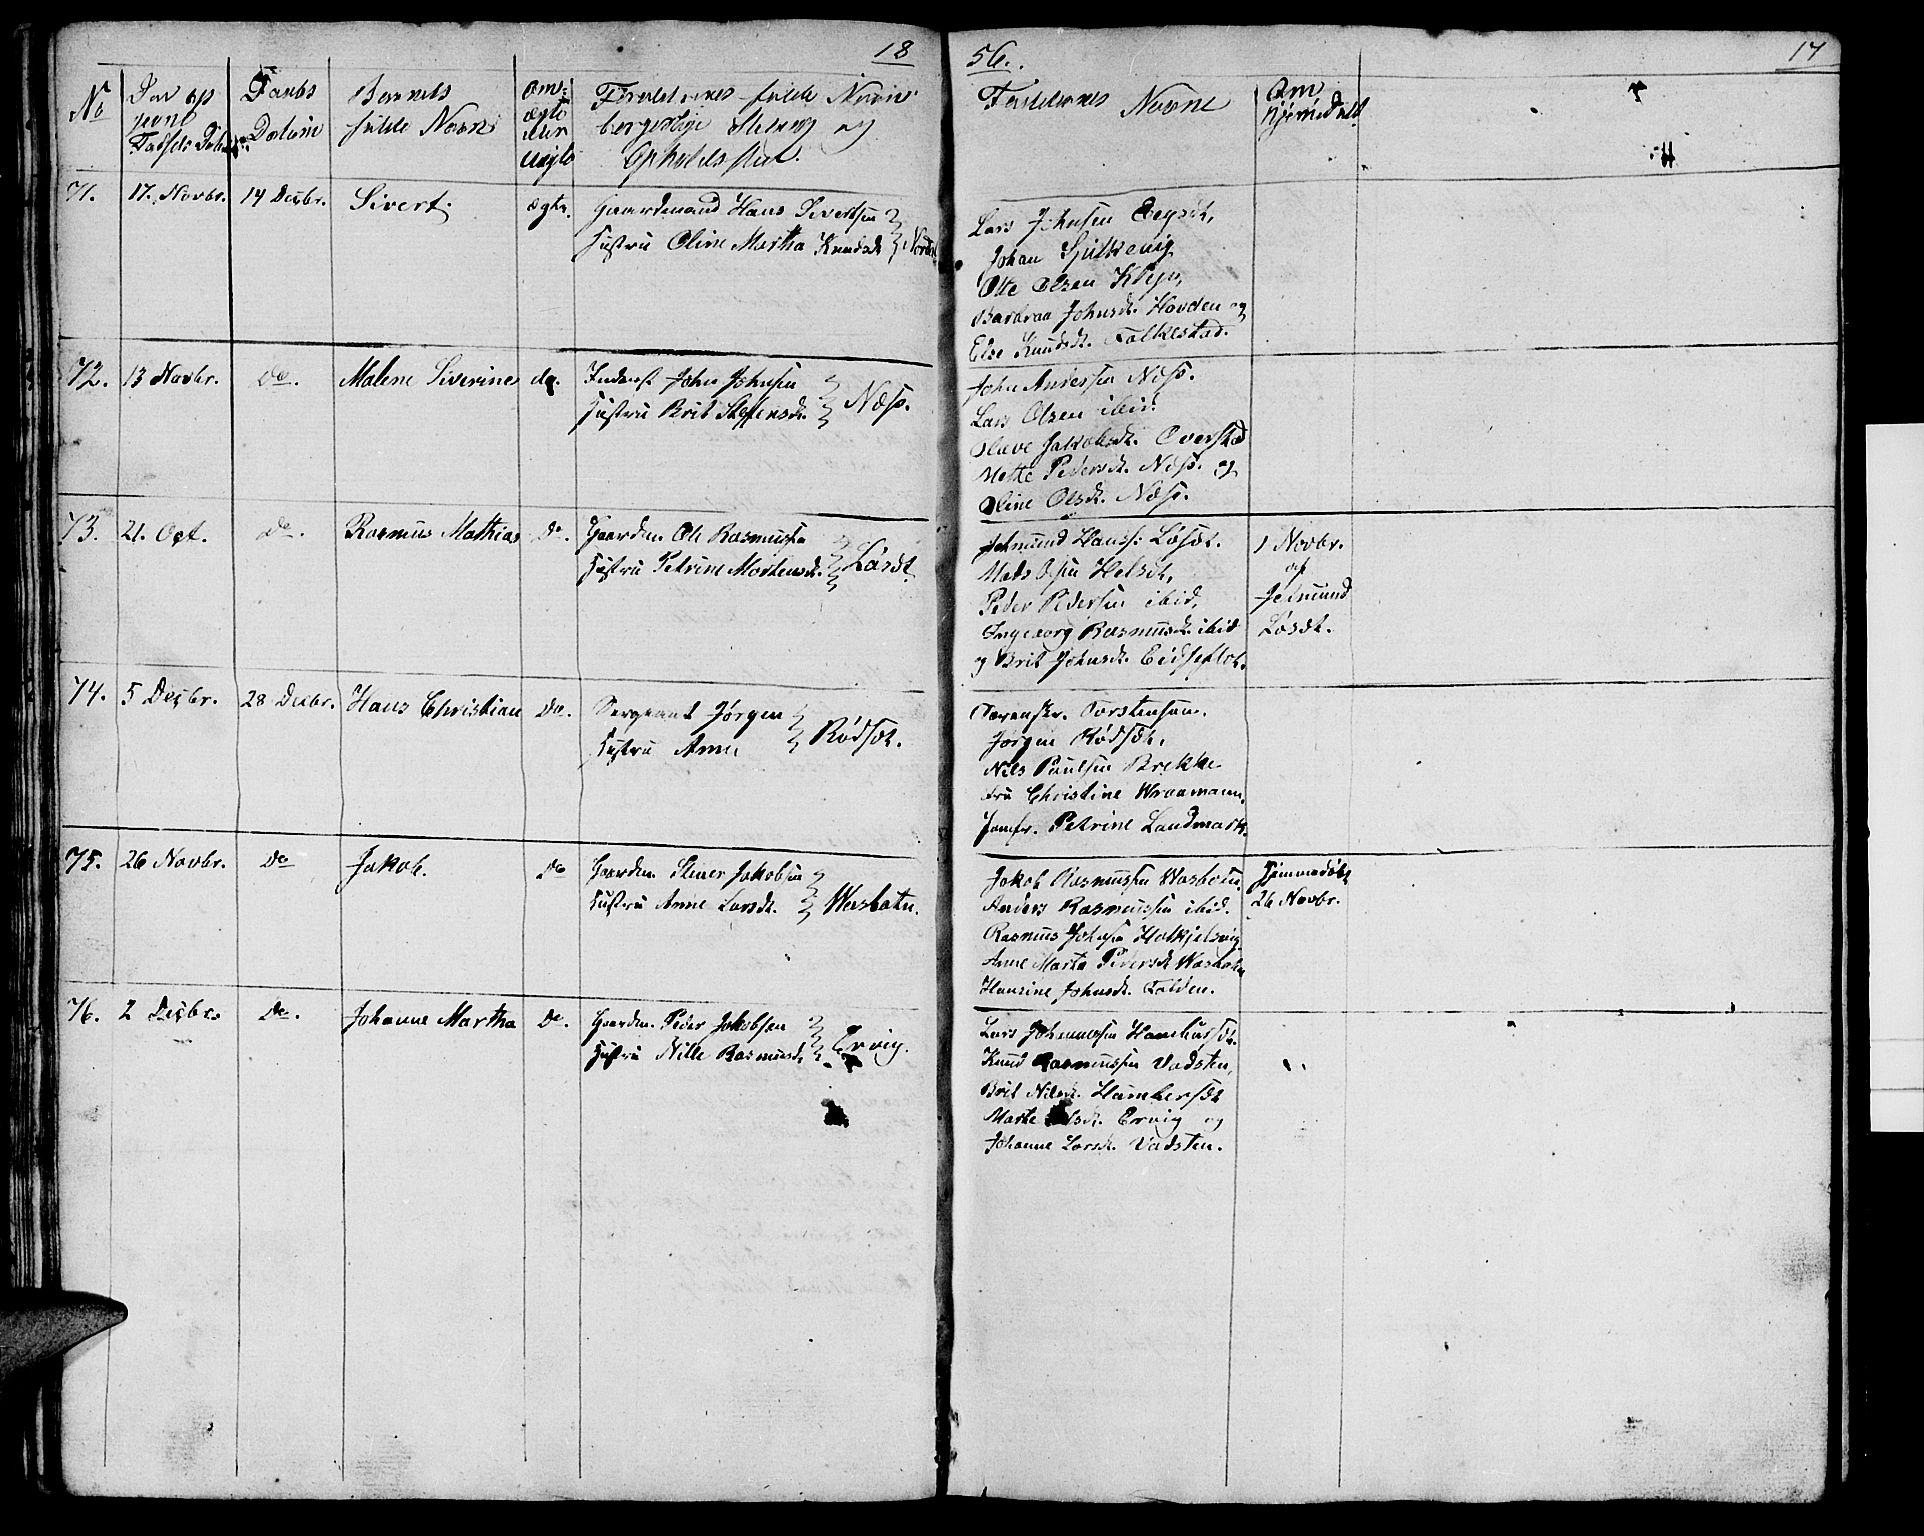 18
56.
17
No
Daabs
Datum
Barnets
fulde Navne
Om
ægte
eller
uægte
Forældrenes fulde Navne
borgerlige Stilling og
Opholdssted.
Faddernes Navne
Om
hjemmedøbt
71.
17. Novbr.
14 Decbr.
Sivert.
ægte.
Gaardmand Hans Sivertsen
Hustru Oline Martha Knudsdt.
Lars Johnsen
Johan
Otte Olsen
Barbraa Johnsdt. Hovden og
Else Knudsdt. Folkestad.
72.
13 Novbr.
do.
Malene Siverine
do.
Inderst John Johnsen
Hustru Brit Steffensdt.
Næss.
John Andersen Næss.
Lars Olsen ibid.
Olave Jakobsdt.
Mette Pedersdt. Næss. og
Oline Olsdt. Næss.
73.
21. Oct.
do.
Rasmus Mathias
do.
Gaardm. Ole Rasmussen
Hustru Petrine Mortensdt.
Løsdt.
Jetmund Hanss: Løsdt.
Mads Olsen Helsdt,
Peder Pedersen ibid,
Ingeborg Rasmusdt. ibid
og Brit Johnsdt. Eidseflot.
1 Novbr.
af
Jetmund
Løsdt.
74.
5 Decbr.
28 Decbr.
Hans Christian
do.
Sergeant Jørgen
Hustru Anne
Rødsdt.
Torstensen.
Jørgen Rødsdt,
Nils Paulsen Brekke
Fru Christine Wraamann.
Jomfr. Petrine Landmark.
75.
26 Novbr.
do
Jakob.
do
Gaardm. Stener Jakobsen
Hustru Anne Larsdt.
Wasbotn.
Jakob Rasmussen Wasbotn.
Anders Rasmussen ibid.
Rasmus Johnsen
Anne Marta Pedersdt Wasbotn
Hansine Johnsdt. Folden.
Hjemmedøbt
26 Novbr.
76.
2 Decbr.
do.
Johanne Martha
do.
Gaardm. Peder Jakobsen
Hustru Nille Rasmusdt.
Ervig.
Lars Johannessen
Knud Rasmussen Vadsten,
Brit Nilsdt.
Marte Olsdt. Ervig og
Johanne Larsdt. Vadsten.